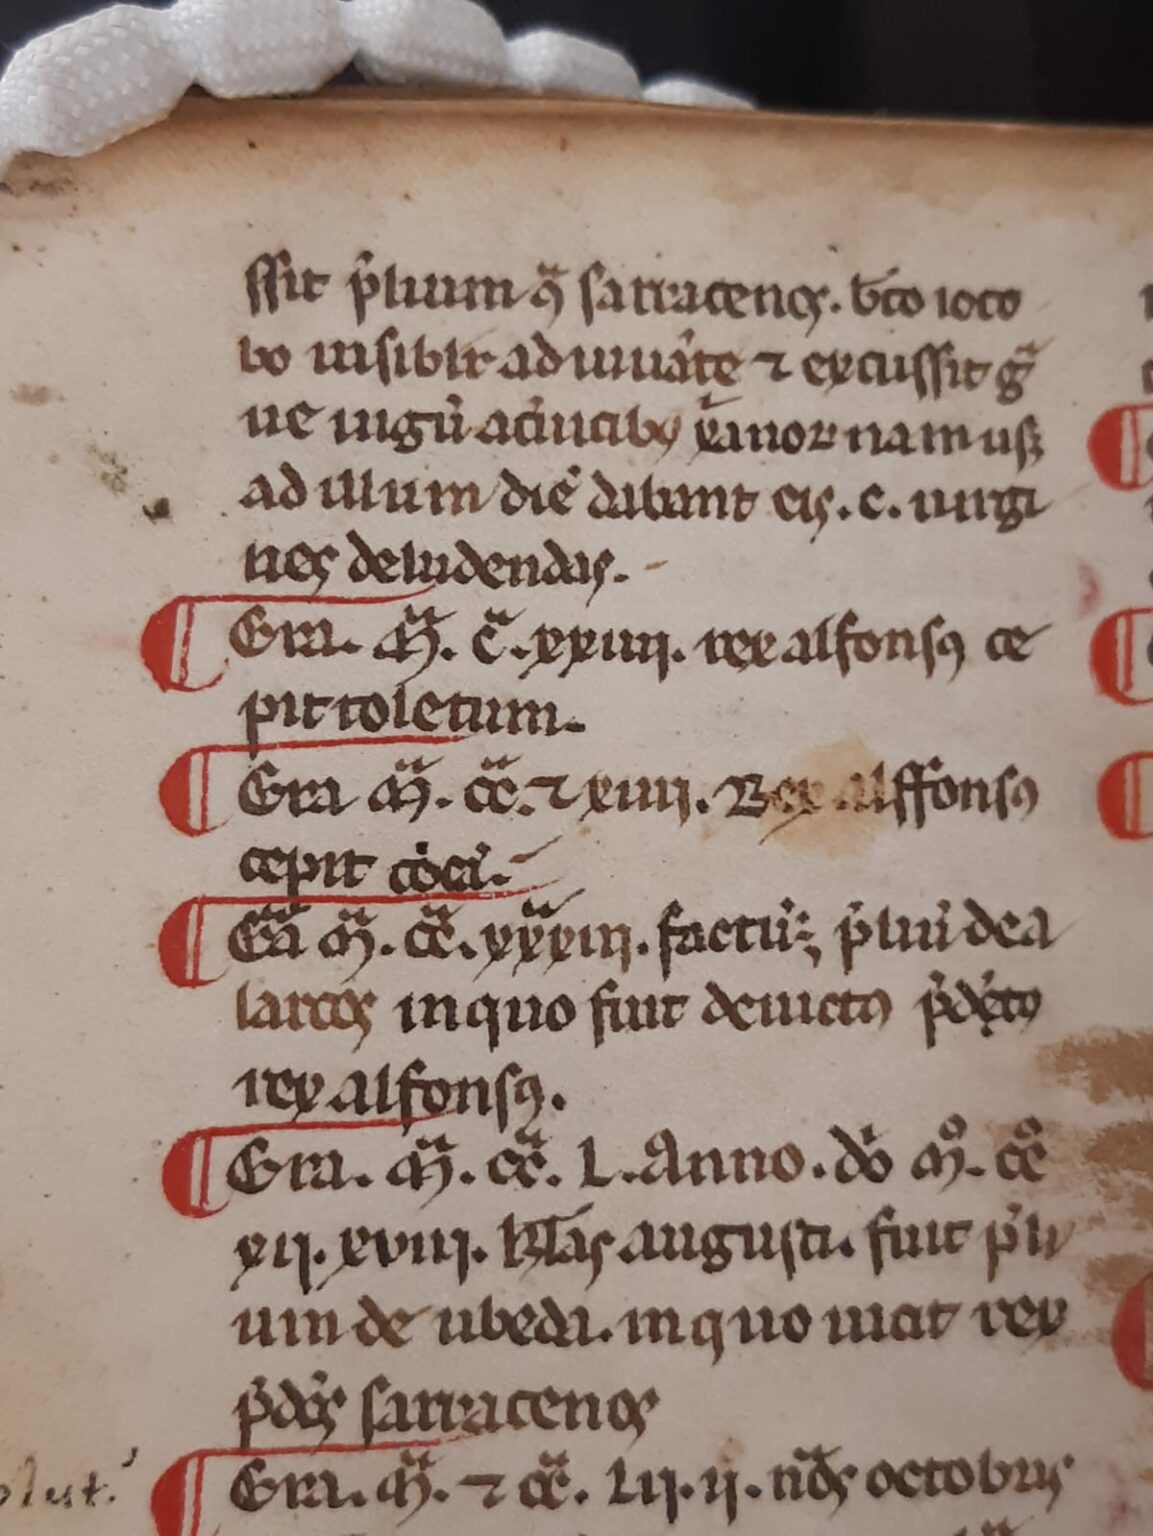 ssit p̃lium q̃ sarracenos. bt̃o iaco
bo uisibilr̃ adiuuãte ⁊ excussit g̃
ue iugũ a c̃uicibꝰ xp̃ianoꝝ nam usꝫ
ad illum diẽ dabant eis. c. uirgi
nes deludendas.
Era. ṁ. c̃. xxiiij. rex alfonsꝰ ce
pit toletum.
Era ṁ. cc̃. ⁊ xiiij. Rex alffonsꝰ
cepit
Eã ṁ. cc̃. xxxiij. factũ ÷ p̃liũ de a
larcos in quo fuit deuictꝰ p̃dc̃tꝰ
rex alfonsꝰ.
Era. ṁ. cc̃. L. Anno. dñi m̊. cc̊
xij. xviij. kl̃as augusti. fuit p̃li
um de ubeda. in quo uicit rex
p̃dc̃s sarracenos
Era. ṁ. ⁊ cc̃. Lij. ij. nõs octobris